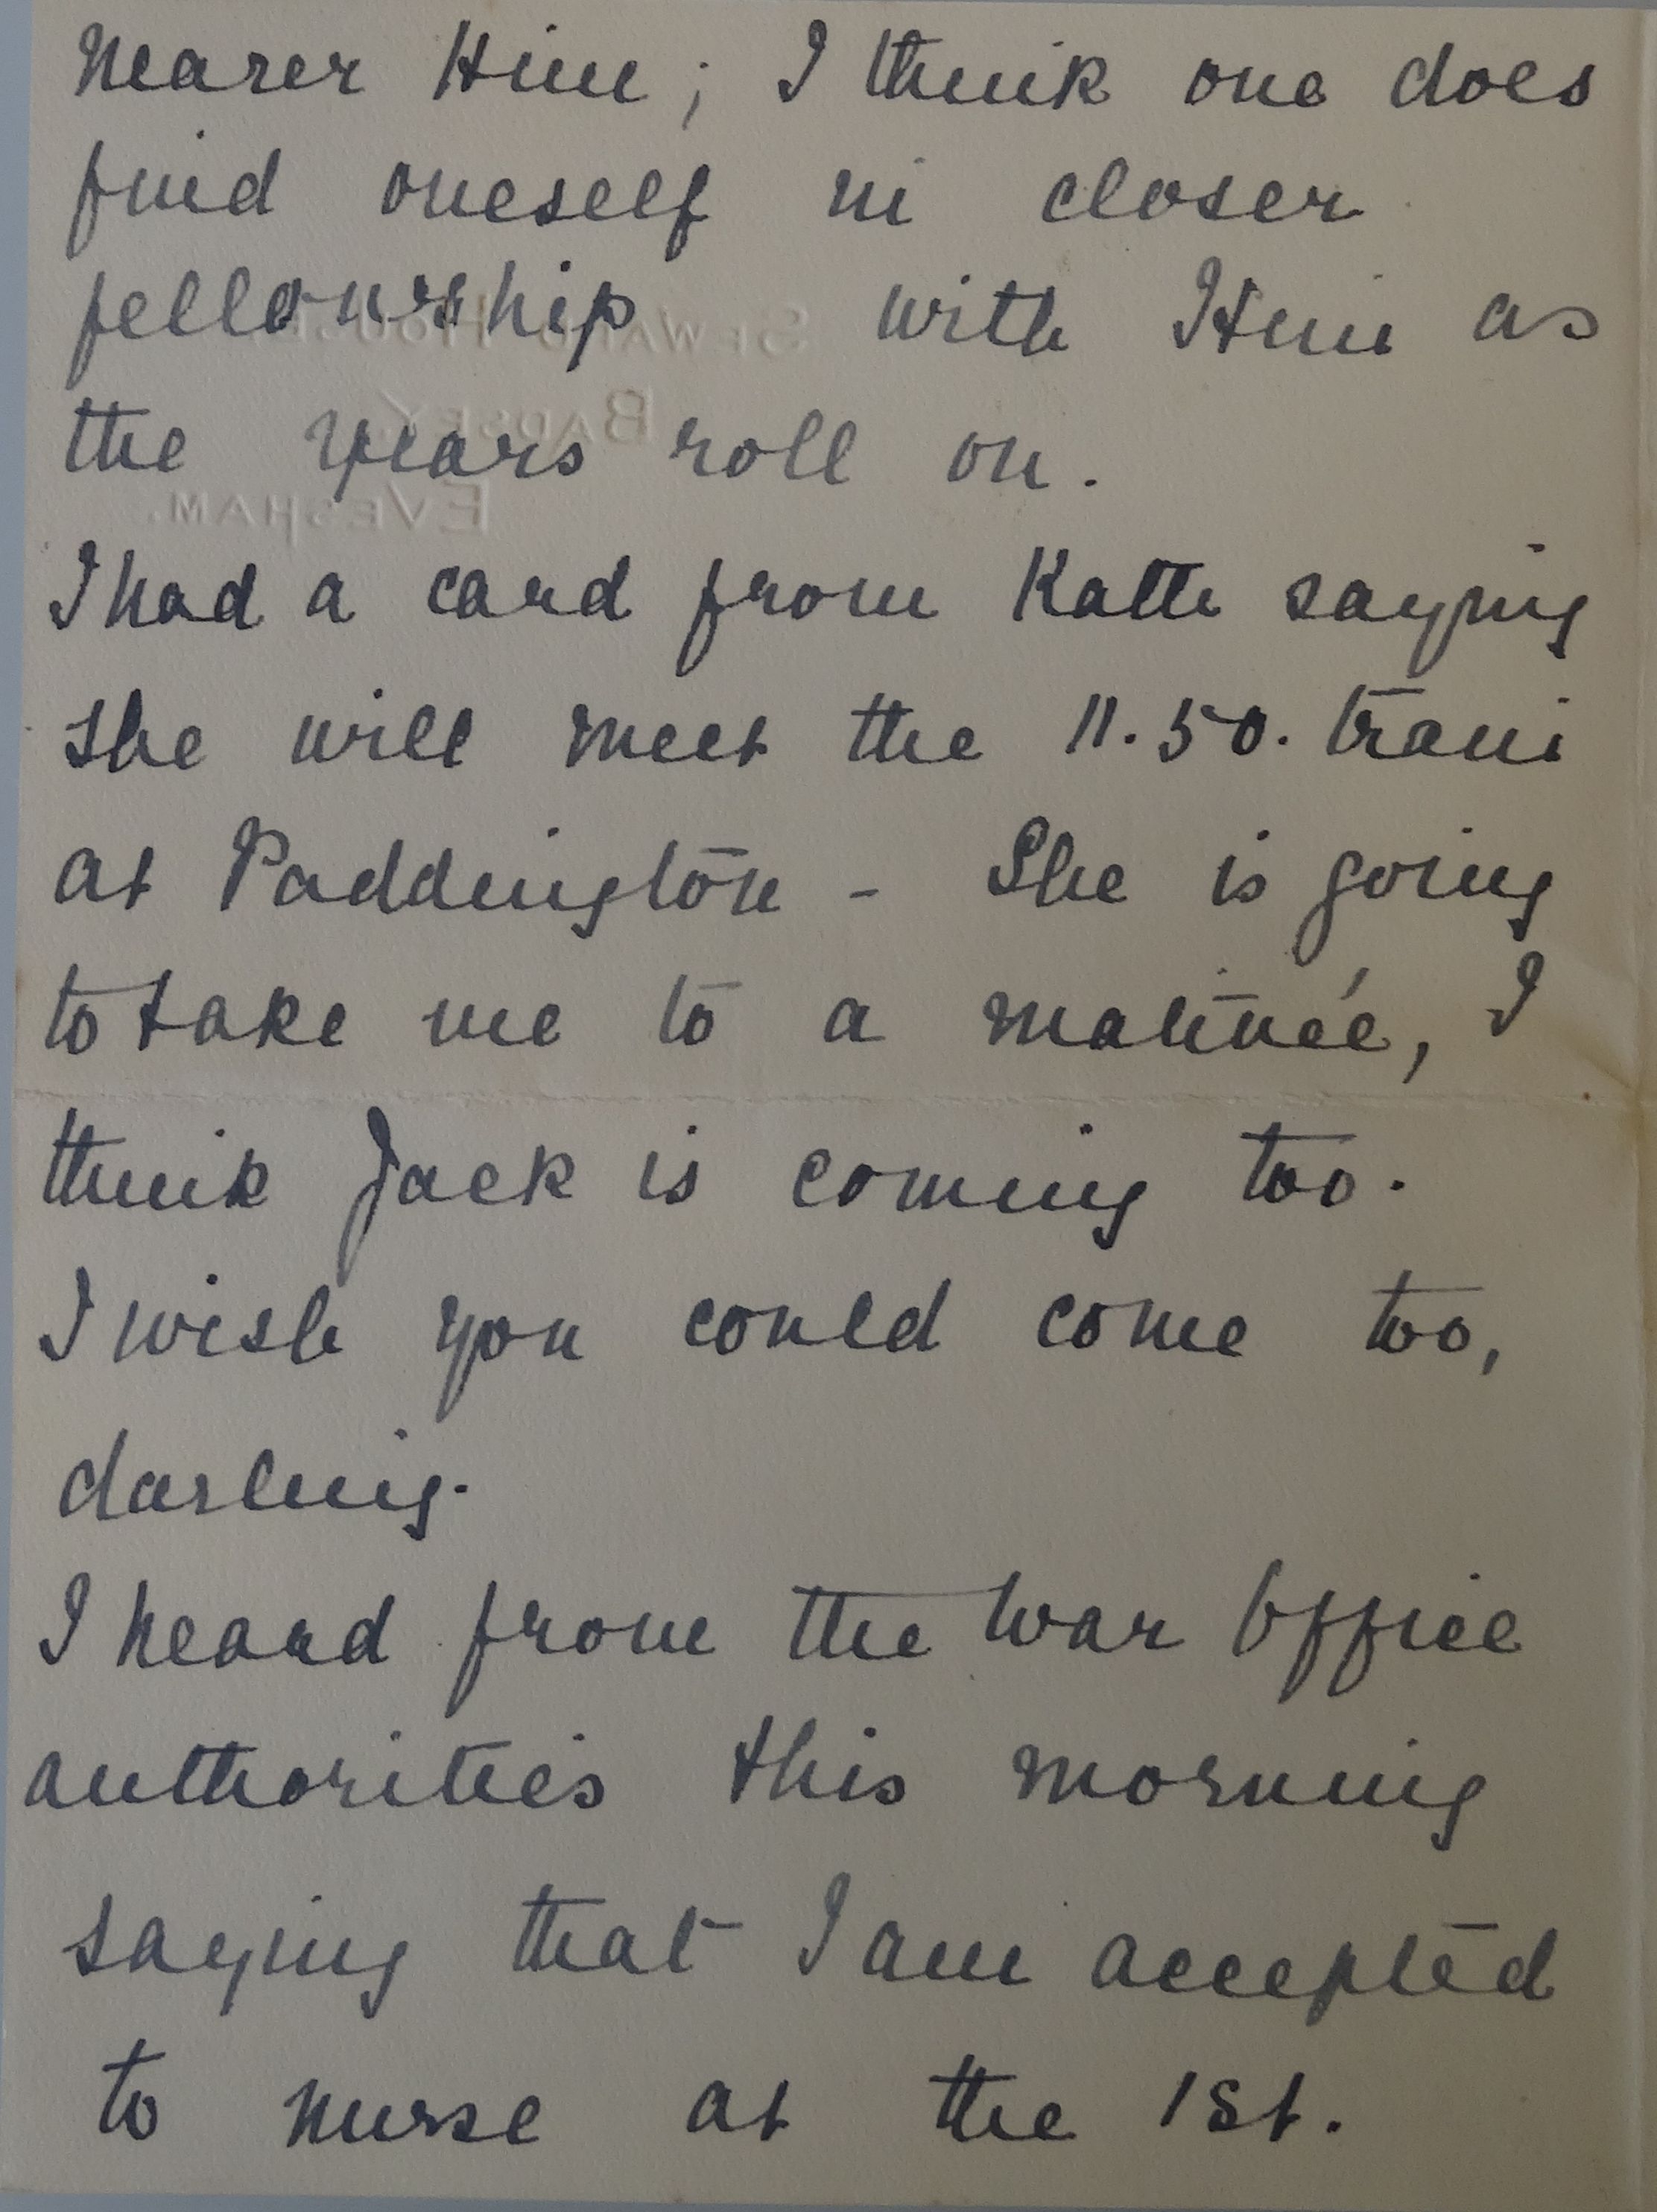 nearer Him; I think one does
find oneself in closer
fellowship with Him as
the years roll on.
SEWARD HOUSE,
BADSEY,
EVESHAM.
I had a card from Kath saying
she will meet the 11.50. train
at Paddington - She is going
to take me to a matinée, I
think Jack is coming too.
I wish you could come too,
darling.
I heard from the War Office
authorities this morning
saying that I am accepted
to nurse at the 1st.